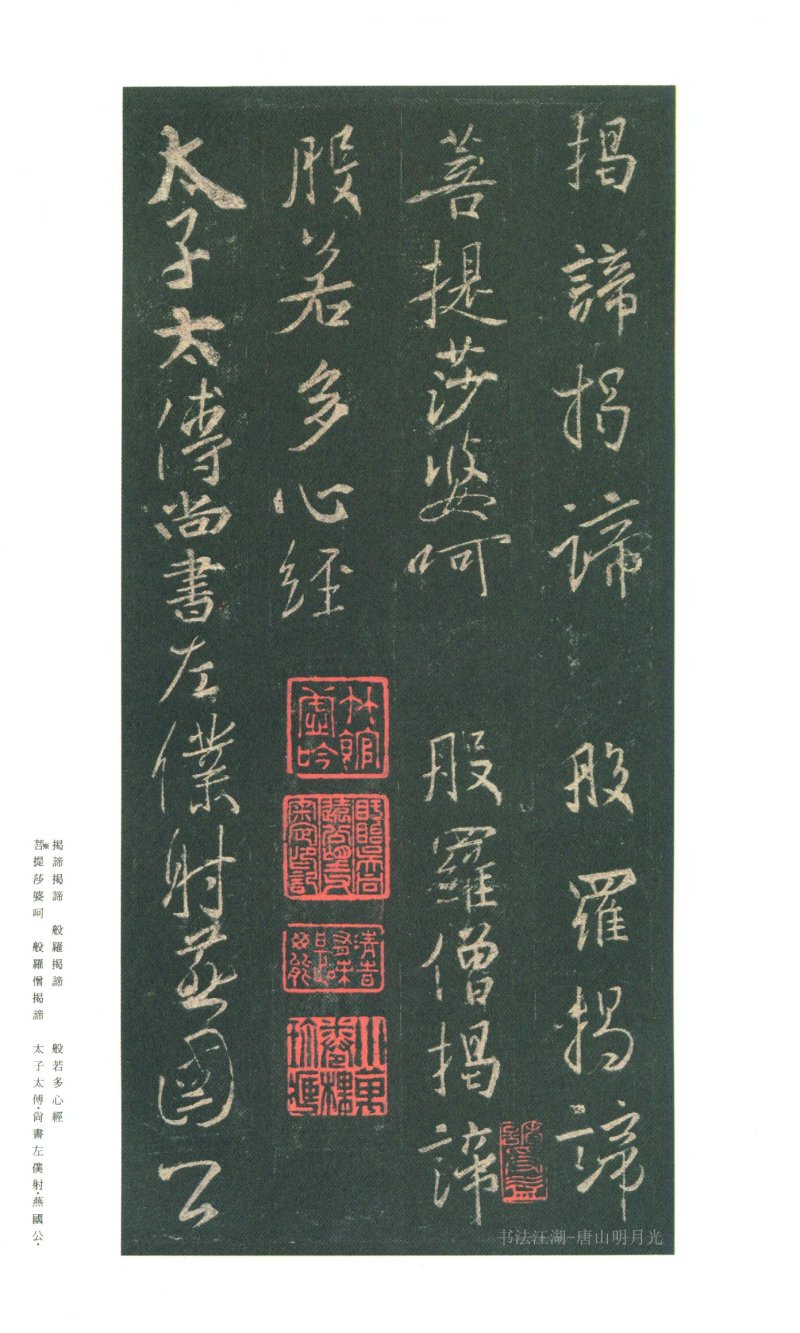 揭諦揭諦　般羅揭諦
菩提莎婆呵　般羅僧揭諦
般若多心經
太子太傅尚書左僕射燕國公
竹館虛吟
書法江湖-唐山明月光
揭諦揭諦　般羅揭諦　般若多心經
菩提莎婆呵　般羅僧揭諦　太子太傅·尚書左僕射·燕國公·